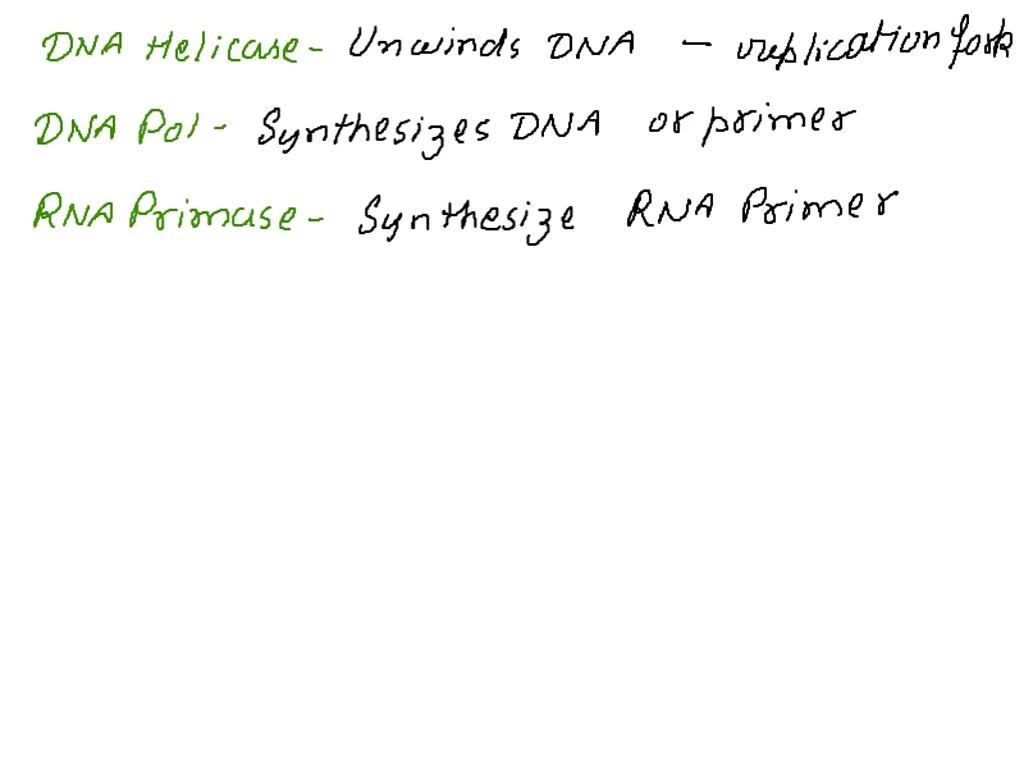 DNA Helicase - Unwinds DNA - replication fork
DNA Pol - Synthesizes DNA or primer
RNA Primase - Synthesize RNA Primer